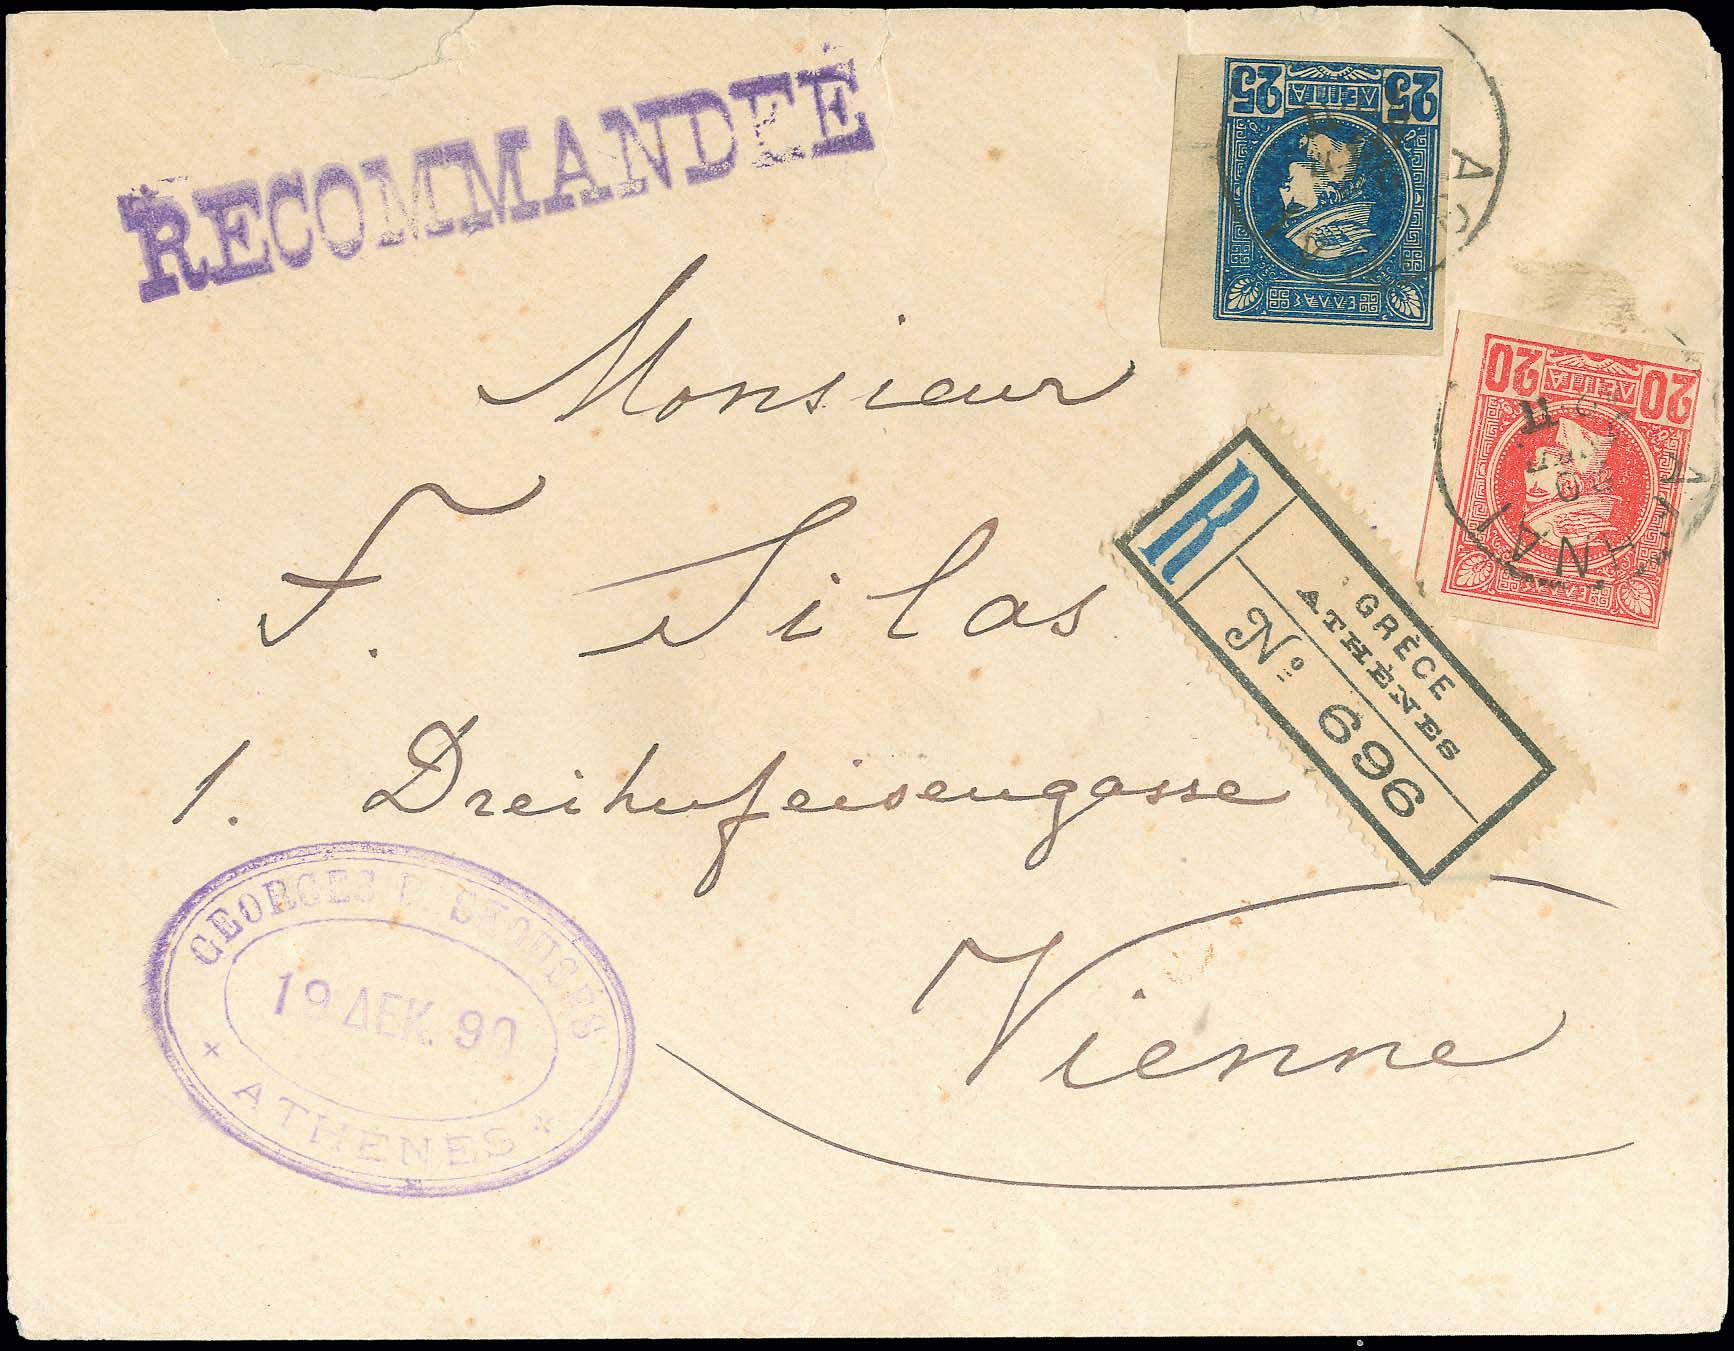 RECOMMANDÉE
25 ΛΕΠΤΑ 25
ΕΛΛΑΣ
20 ΛΕΠΤΑ 20
ΕΛΛΑΣ
Monsieur
F. Silas
R
GRÈCE
ATHÈNES
Nº 696
1. Dreihufeisengasse
Vienne
GEORGES
19 ΔΕΚ. 90
ATHÈNES